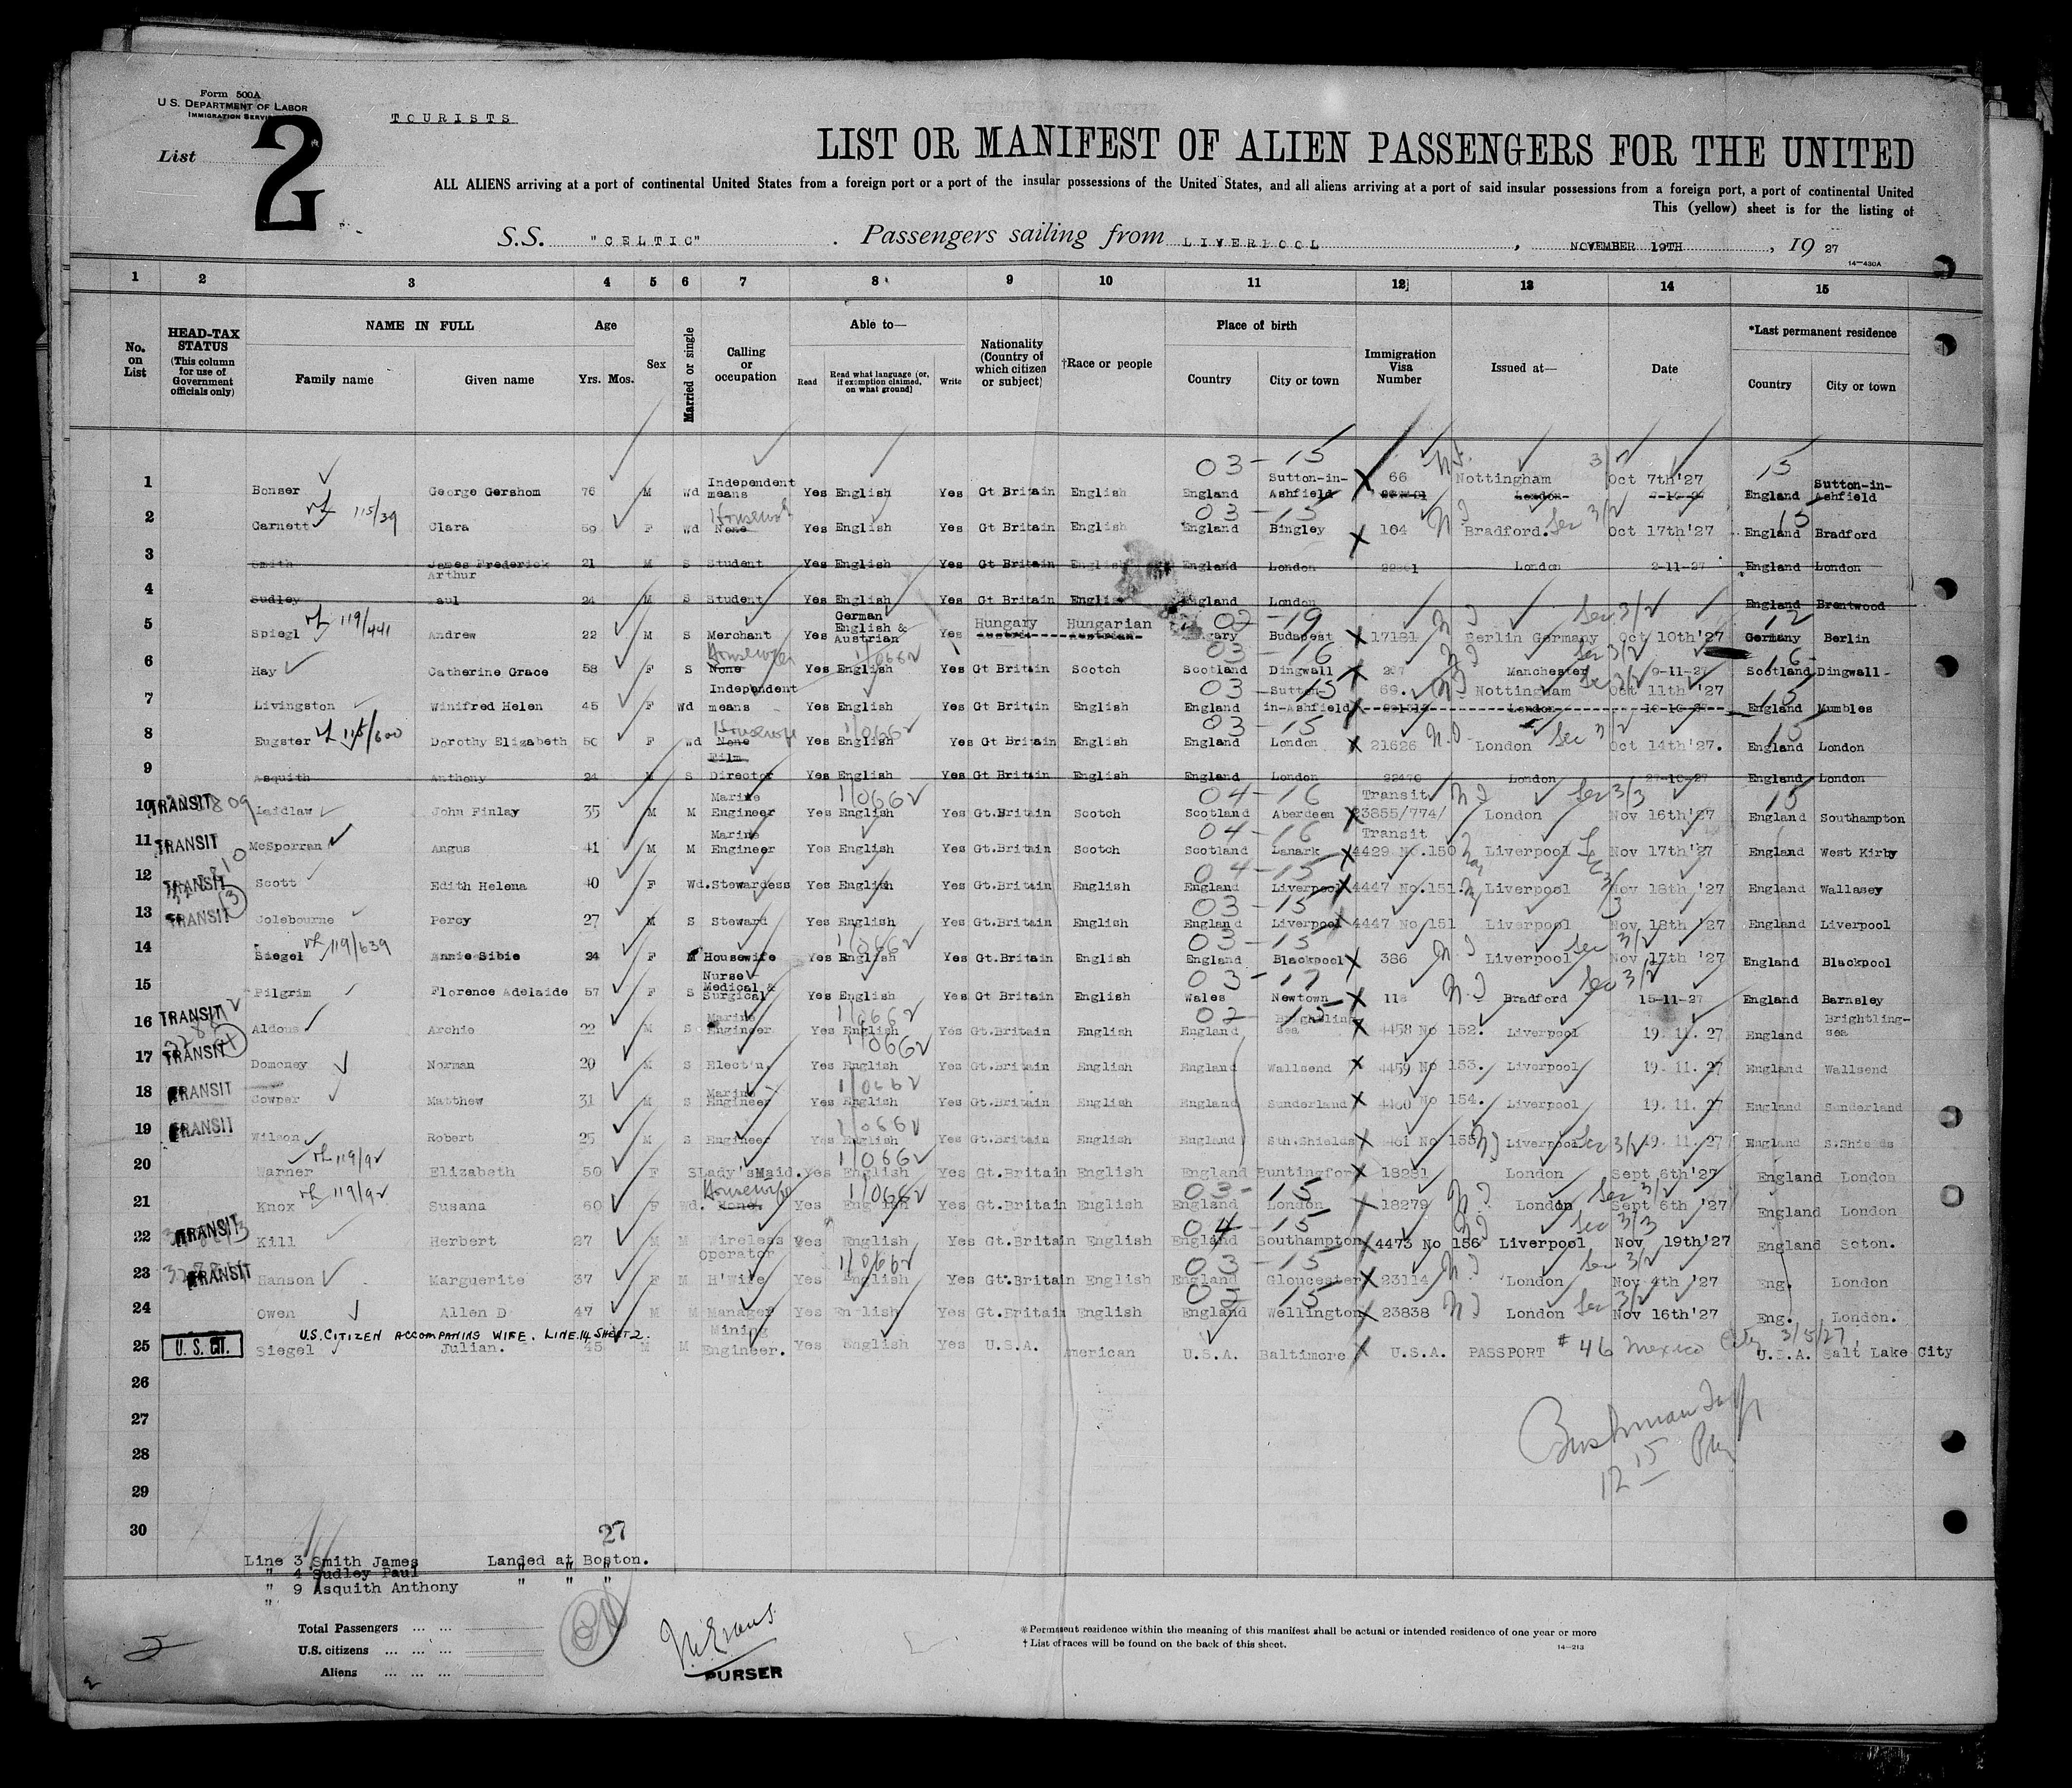 Form 500A
U.S. DEPARTMENT OF LABOR
IMMIGRATION SERVICE
TOURISTS
List 2
LIST OR MANIFEST OF ALIEN PASSENGERS FOR THE UNITED
ALL ALIENS arriving at a port of continental United States from a foreign port or a port of the insular possessions of the United States, and all aliens arriving at a port of said insular possessions from a foreign port, a port of continental United
This (yellow) sheet is for the listing of
S.S. "CELTIC". Passengers sailing from LIVERPOOL, NOVEMBER 19TH, 19 27
14—430A
1 2 3 4 5 6 7 8 9 10 11 12 13 14 15
No. on List
HEAD-TAX STATUS (This column for use of Government officials only)
NAME IN FULL Family name Given name
Age Yrs. Mos.
Sex
Married or single
Calling or occupation
Able to— Read Read what language (or, if exemption claimed, on what ground) Write
Nationality (Country of which citizen or subject)
†Race or people
Place of birth Country City or town
Immigration Visa Number
Issued at—
Date
*Last permanent residence Country City or town
03-15
1 Bonser George Gershom 76 M Wd Independent means Yes English Yes Gt Britain English England Sutton-in-Ashfield 66 Nottingham London Oct 7th'27 15 England Sutton-in-Ashfield
115/39 Housewife 03-15
2 Garnett Clara 59 F Wd None Yes English Yes Gt Britain English England Bingley 104 Bradford. Sec 3/2 Oct 17th'27 15 England Bradford
3 Smith James Frederick Arthur 21 M S Student Yes English Yes Gt Britain English England London London 2-11-27 England London
4 Sudley Paul 24 M S Student Yes English Yes Gt Britain English England London England Brentwood
119/441 02-19 Sec 3/2 12
5 Spiegl Andrew 22 M S Merchant Yes German English & Austrian Yes Hungary Hungarian Budapest 17181 Berlin Germany Oct 10th'27 Germany Berlin
Housewife 1/0662 03-16 Sec 3/2 16
6 Hay Catherine Grace 58 F S None Yes English Yes Gt Britain Scotch Scotland Dingwall Manchester 9-11-27 Scotland Dingwall
03-15 Sec 3/2 15
7 Livingston Winifred Helen 45 F Wd Independent means Yes English Yes Gt Britain English England Sutton-in-Ashfield 69. Nottingham London Oct 11th '27 England Mumbles
115/600 Housewife 1/0662 03-15 Sec 3/2 15
8 Eugster Dorothy Elizabeth 50 F Wd None Yes English Yes Gt Britain English England London 21626 London Oct 14th'27. England London
9 Asquith Anthony 24 M S Film Director Yes English Yes Gt Britain English England London 22470 London 27-10-27 England London
1/0662 04-16 Sec 3/3 15
10 TRANSIT Laidlaw John Finlay 35 M M Marine Engineer Yes English Yes Gt.Britain Scotch Scotland Aberdeen Transit 23855/774/ London Nov 16th'27 England Southampton
04-16
11 TRANSIT McSporran Angus 41 M M Marine Engineer Yes English Yes Gt.Britain Scotch Scotland Lanark Transit 4429 No.150 Liverpool Nov 17th'27 England West Kirby
04-15
12 TRANSIT Scott Edith Helena 40 F Wd. Stewardess Yes English Yes Gt.Britain English England Liverpool 4447 No.151. Liverpool Nov 18th'27 England Wallasey
03-15
13 TRANSIT Colebourne Percy 27 M S Steward Yes English Yes Gt.Britain English England Liverpool 4447 No 151 Liverpool Nov 18th '27 England Liverpool
119/639 1/0662 03-15 Sec 3/2
14 Siegel Annie Sibie 24 F M Housewife Yes English Yes Gt.Britain English England Blackpool 386 Liverpool Nov 17th '27 England Blackpool
03-17 Sec 3/2
15 Pilgrim Florence Adelaide 57 F S Nurse Medical & Surgical Yes English Yes Gt Britain English Wales Newtown 118 Bradford 15-11-27 England Barnsley
1/0662 02-15
16 TRANSIT Aldous Archie 22 M S Marine Engineer Yes English Yes Gt.Britain English England Brightlingsea 4458 No 152. Liverpool 19.11.27 England Brightling-sea
1/0662
17 TRANSIT Domoney Norman 20 M S Elect'n. Yes English Yes Gt.Britain English England Wallsend 4459 No 153. Liverpool 19.11.27 England Wallsend
1/0662
18 TRANSIT Cowper Matthew 31 M S Marine Engineer Yes English Yes Gt.Britain English England Sunderland 4460 No 154. Liverpool 19.11.27 England Sunderland
1/0662
19 TRANSIT Wilson Robert 25 M S Engineer Yes English Yes Gt.Britain English England Sth.Shields 4461 No 155 Liverpool Sec 3/2 19.11.27 England S.Shields
119/92 1/0662
20 Warner Elizabeth 50 F S Lady'sMaid. Yes English Yes Gt.Britain English England Buntingford 18281 London Sept 6th'27 England London
119/92 Housewife 1/0662 03-15 Sec 3/2
21 Knox Susana 60 F Wd. None. Yes English Yes Gt.Britain English England London 18279 London Sept 6th '27 England London
04-15 Sec 3/3
22 TRANSIT Kill Herbert 27 M M Wireless Operator Yes English Yes Gt.Britain English England Southampton 4473 No 156 Liverpool Nov 19th'27 England Soton.
1/0662 03-15 Sec 3/2
23 TRANSIT Hanson Marguerite 37 F M H'Wife Yes English Yes Gt.Britain English England Gloucester 23114 London Nov 4th '27 Eng. London
15 Sec 3/2
24 Owen Allen D 47 M M Manager Yes English Yes Gt.Britain English England Wellington 23838 London Nov 16th'27 Eng. London.
U.S. CITIZEN ACCOMPANING WIFE. LINE.14 SHEET 2.
25 U.S. CIT. Siegel Julian. 45 M M Mining Engineer. Yes English Yes U.S.A. American U.S.A. Baltimore U.S.A. PASSPORT #46 Mexico City 3/5/27 U.S.A. Salt Lake City
26
27
28
29
30
12 15 PM
27
Line 3 Smith James Landed at Boston.
" 4 Sudley Paul " " "
" 9 Asquith Anthony
"
Total Passengers ... ...
U.S. citizens ... ... ...
Aliens ... ... ...
PURSER
* Permanent residence within the meaning of this manifest shall be actual or intended residence of one year or more
† List of races will be found on the back of this sheet.
14—213
2